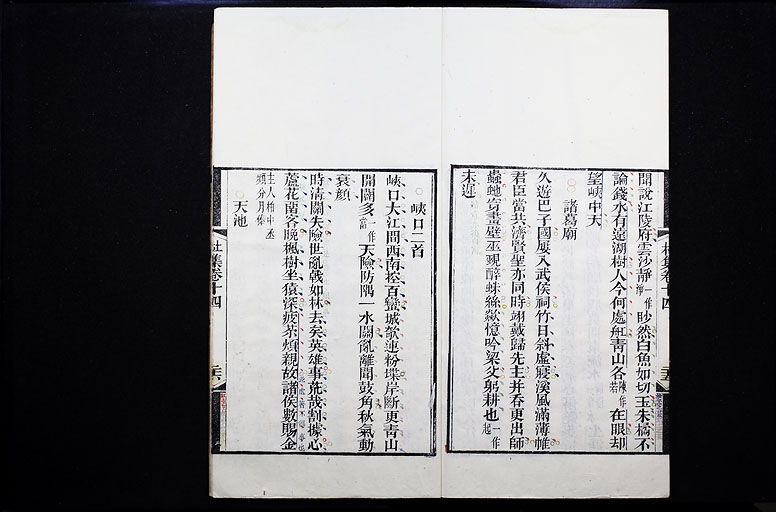 聞說江陵府雲沙靜一作淨眇然白魚如切玉朱橘不
論錢水有遠湖樹人今何處船青山各陳作若在眼却
望峽中天
諸葛廟
久遊巴子國屢入武侯祠竹日斜虛寢溪風滿薄帷
君臣當共濟賢聖亦同時翊戴歸先主并吞更出師
蟲蛇穿畫壁巫覡醉蛛絲歘憶吟梁父躬耕也一作起
未遲
杜集卷十四
峽口二首
峽口大江間西南控百蠻城欹連粉堞岸斷更青山
開闢多一作當天險防隅一水關亂離聞鼓角秋氣動
衰顏
時清關失險世亂戟如林去矣英雄事荒哉割據心
蘆花留客晚楓樹坐猿深疲苶煩親故諸侯數賜金
主人柏中丞
頻分月俸
天池
杜集卷十四